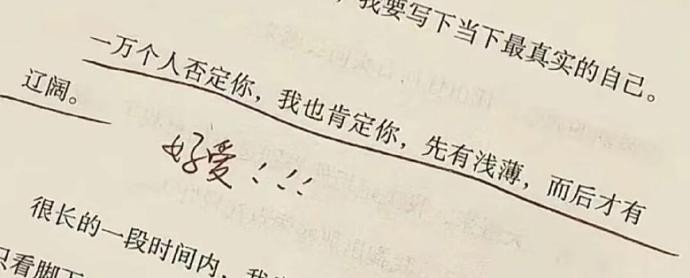 ，我要写下当下最真实的自己。
一万个人否定你，我也肯定你，先有浅薄，而后才有
辽阔。
好爱！！！
很长的一段时间内，我
只看脚下